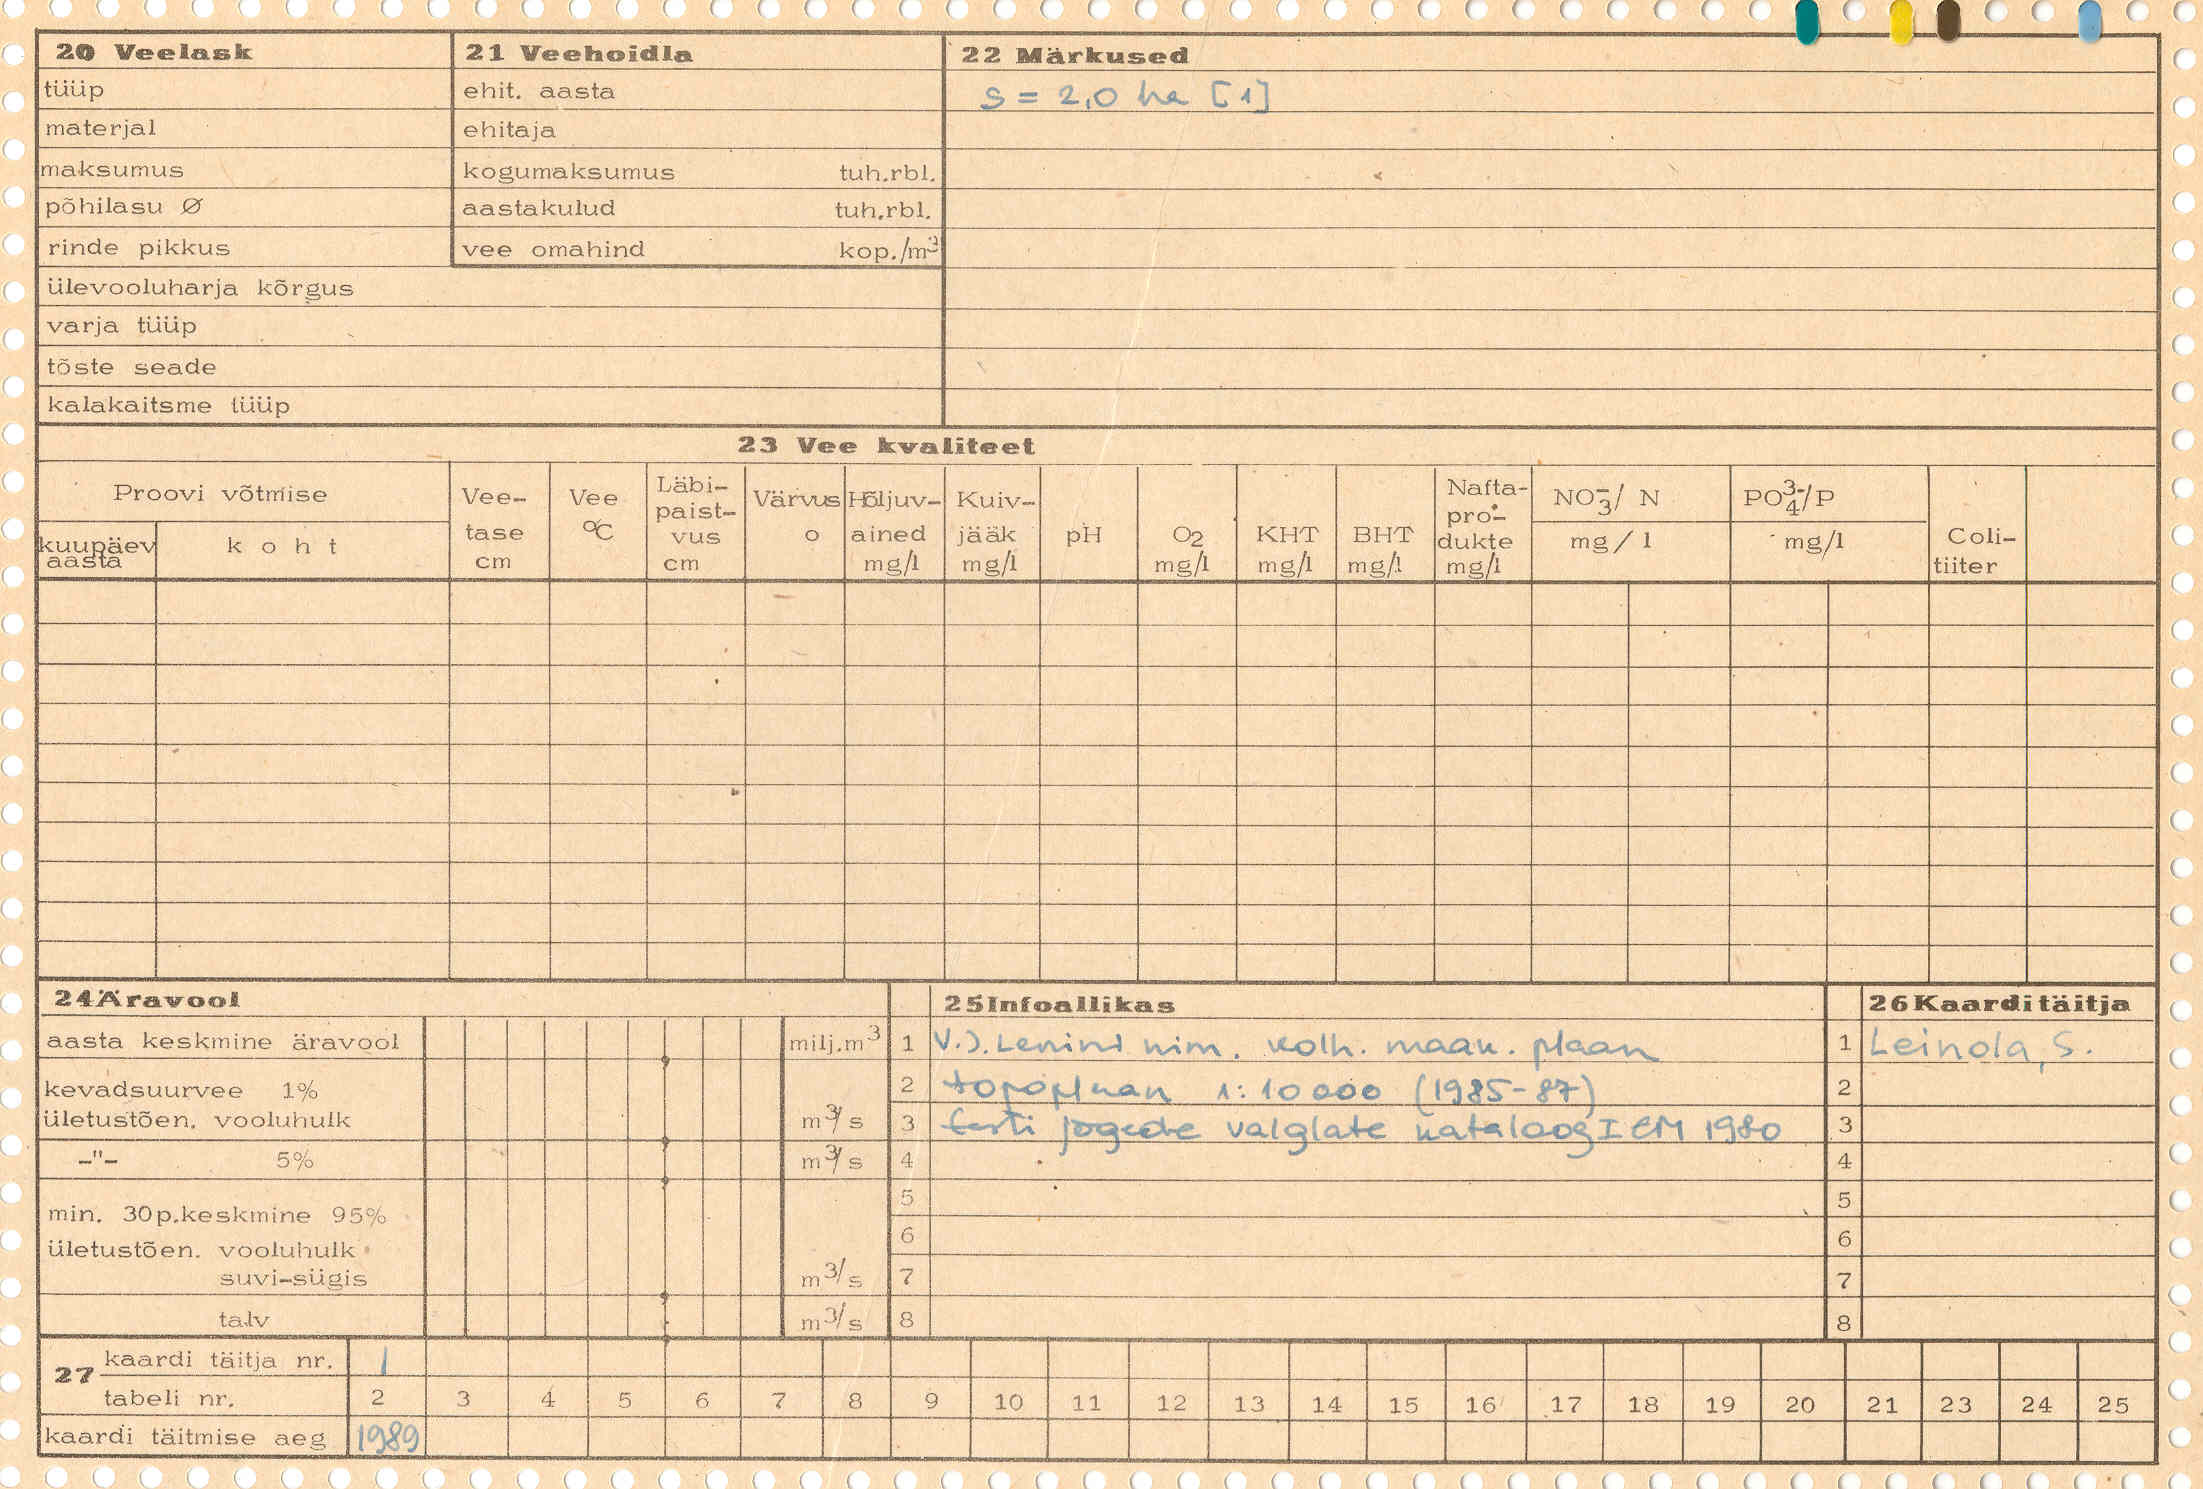 20 Veelask
tüüp
materjal
maksumus
põhilasu Ø
rinde pikkus
ülevooluharja kõrgus
varja tüüp
tõste seade
kalakaitsme tüüp
21 Veehoidla
ehit. aasta
ehitaja
kogumaksumus tuh.rbl.
aastakulud tuh.rbl.
vee omahind kop./m³
22 Märkused
S = 2,0 ha [1]
23 Vee kvaliteet
Proovi võtmise
kuupäev
aasta
koht
Vee-
tase
cm
Vee
°C
Läbi-
paist-
vus
cm
Värvus
o
Hõljuv-
ained
mg/l
Kuiv-
jääk
mg/l
pH
O2
mg/l
KHT
mg/l
BHT
mg/l
Nafta-
pro-
dukte
mg/l
NO₃⁻/ N
mg/l
PO₄³⁻/P
mg/l
Coli-
tiiter
24 Äravool
aasta keskmine äravool milj.m³
kevadsuurvee 1%
ületustõen. vooluhulk m³/s
-"- 5% m³/s
min. 30p.keskmine 95%
ületustõen. vooluhulk
suvi-sügis m³/s
talv m³/s
25 Infoallikas
1 V.I. Lenini nim. kolh. maak. plaan
2 topoplaan 1:10000 (1985-87)
3 Eesti jõgede valglate kataloog I EM 1980
4
5
6
7
8
26 Kaardi täitja
1 Leinola, S.
2
3
4
5
6
7
8
27 kaardi täitja nr. 1
tabeli nr. 2 3 4 5 6 7 8 9 10 11 12 13 14 15 16 17 18 19 20 21 23 24 25
kaardi täitmise aeg 1989